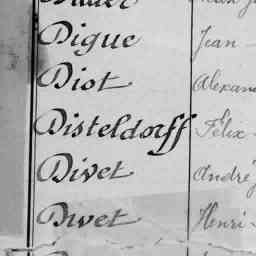 Digue Jean
Diot
Disteldorff Félix
Divet André
Divet Henri